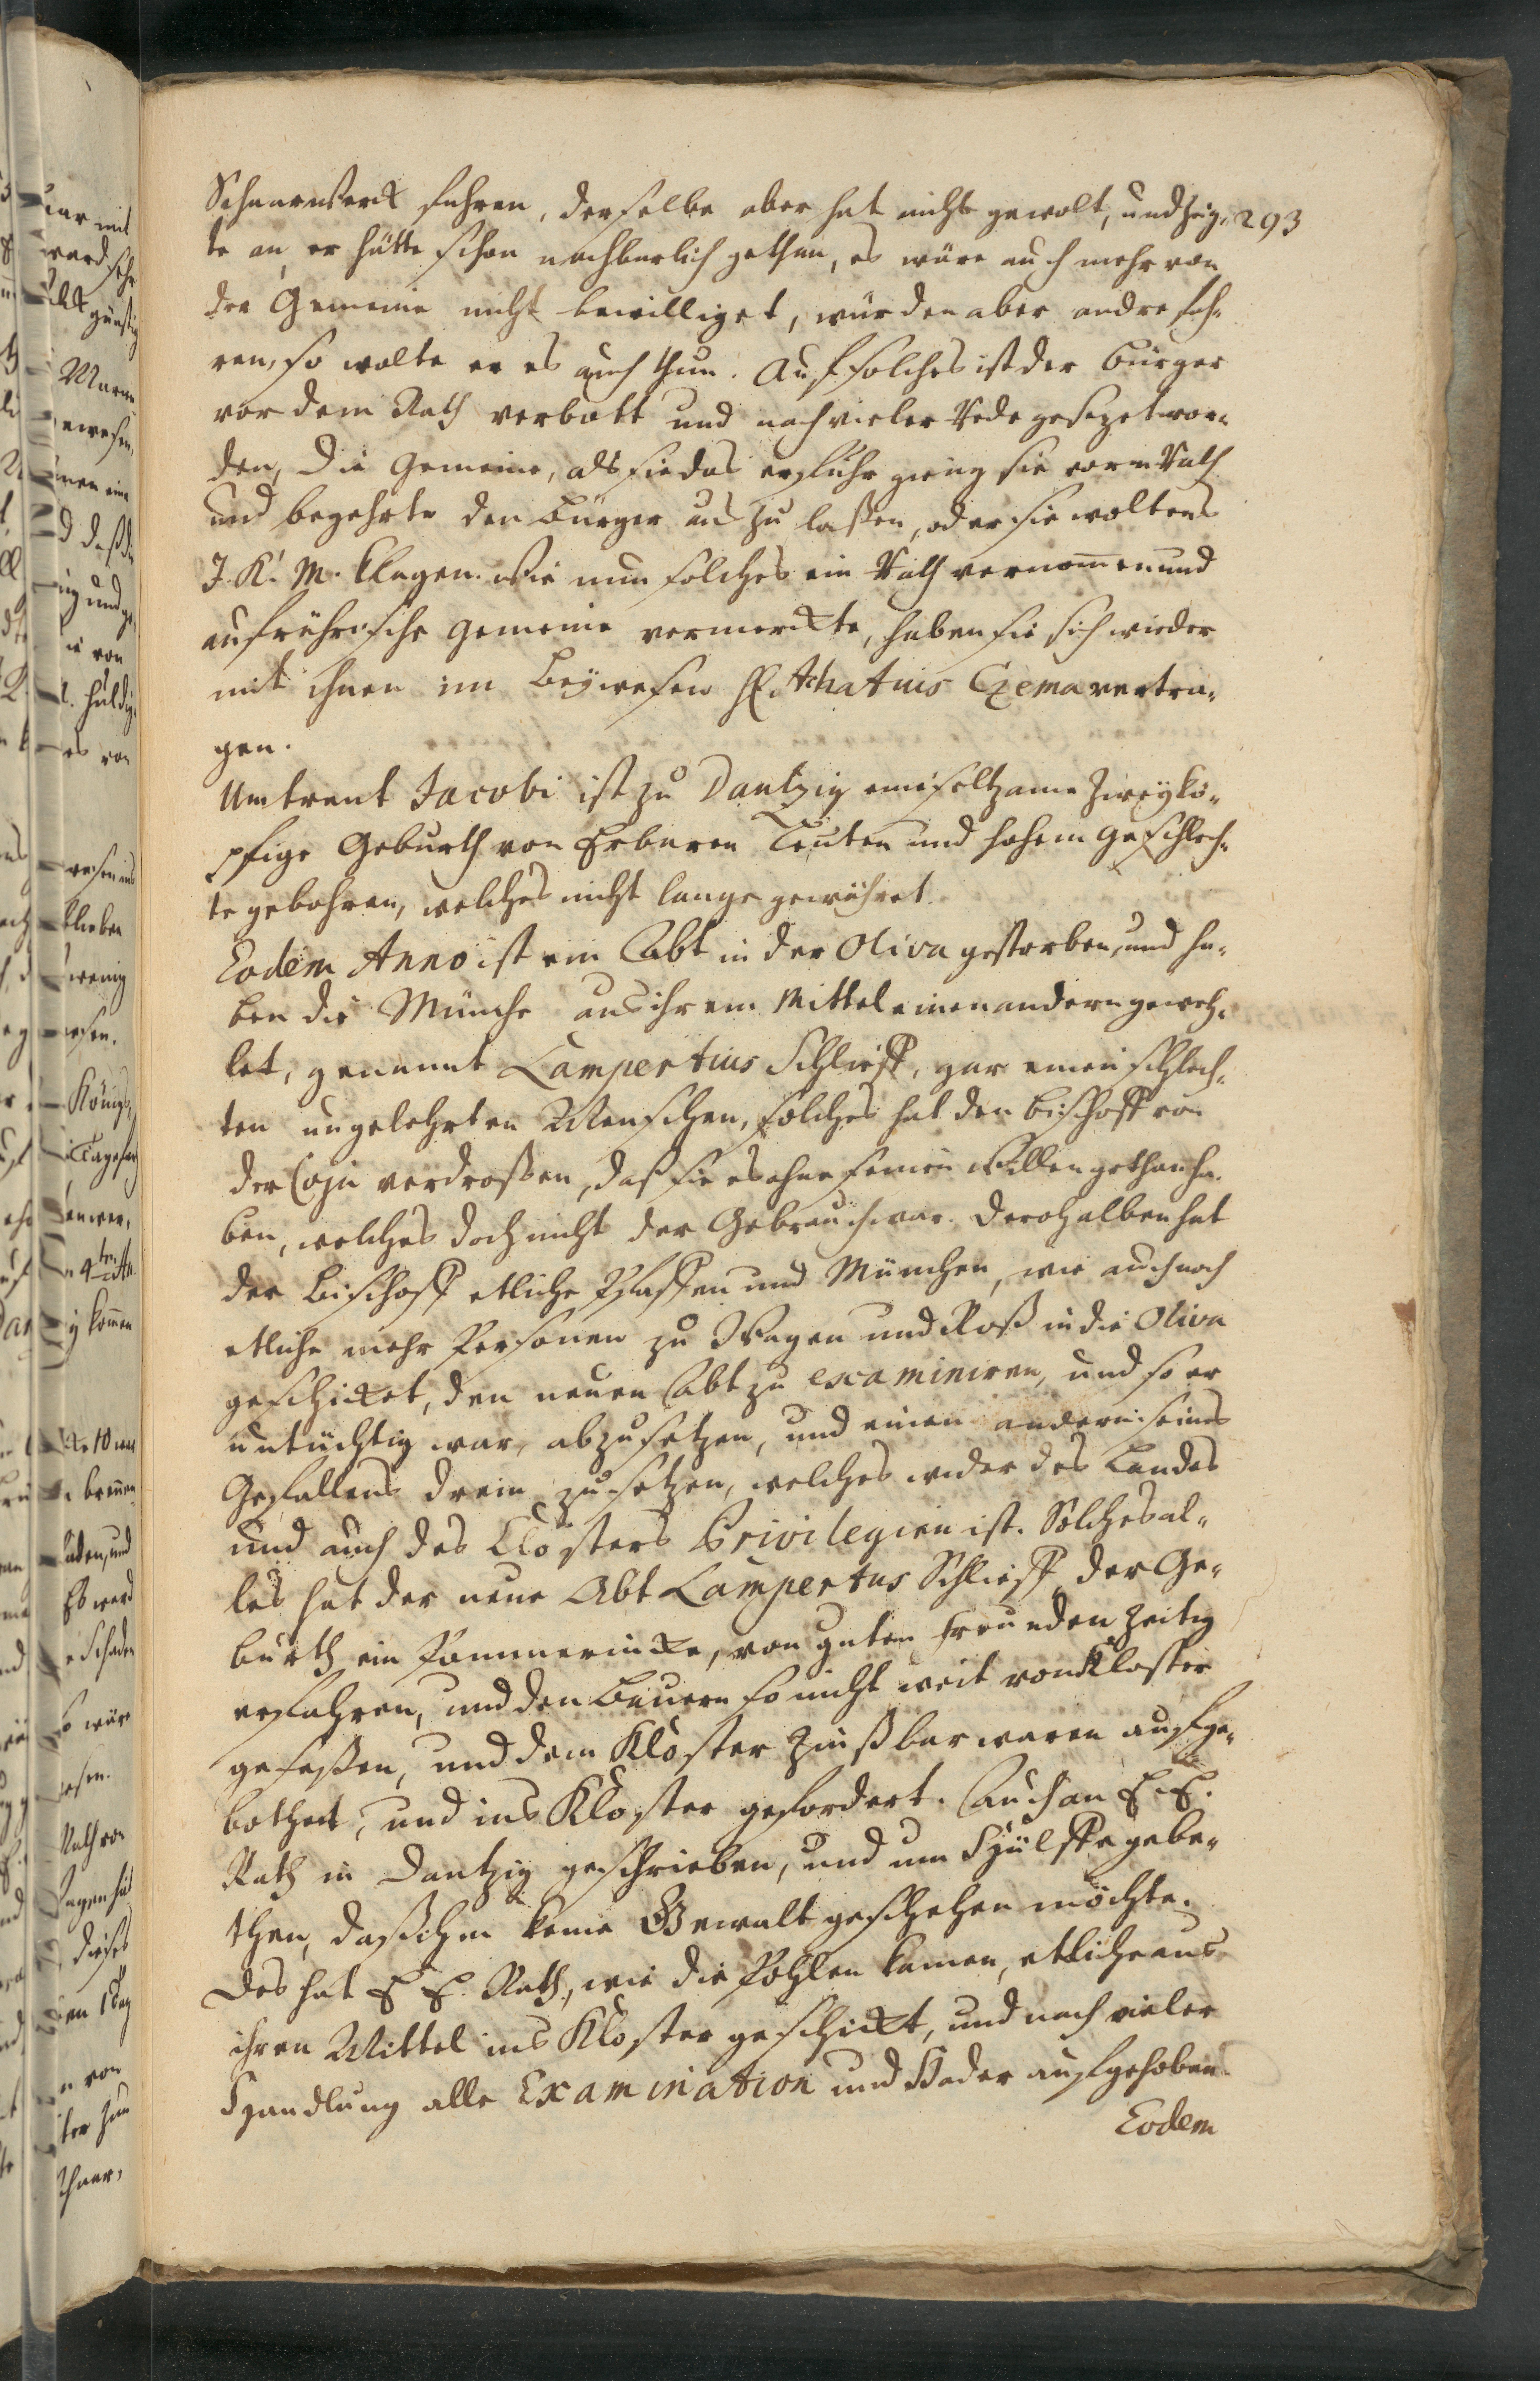 293
Schaarwerck fuhren, derselbe aber hat nicht gewolt, und zeig-
te an, er hätte schon nachbarlich gethan, es wäre auch mehr von
der Gemeine nicht bewilliget, würden aber andre fah-
ren, so wolte er es auch thun. Auf solches ist der Bürger
vor dem Rath verbott und nach vieler Rede gesezet wor-
den, Die Gemeine, als sie das erfuhr gieng sie vorm Rath
und begehrte den Bürger aus zu laßen, oder sie woltens
J. K. M. klagen. Wie nun solches ein Rath vernom̄en und
aufrührische Gemeine vermerckte, haben sie sich wieder
mit ihnen im Beÿwesen H. Achatius Czema vertra-
gen.
Umtrent Jacobi ist zu Dantzig eine seltzame zweÿkö-
pfige Geburth von Erbaren Leuten und hohem Geschlech-
te gebohren, welches nicht lange gewähret.
Eodem Anno ist ein Abt in der Oliva gestorben, und ha-
ben die Münche aus ihrem Mittel einen andern geweh-
let, genannt Lampertius Schlieff, gar einen schlech-
ten ungelehrten Menschen, solches hat den Bischoff von
der Coja verdroßen, daß sie es ohne seinen Willen gethan ha-
ben, welches doch nicht der Gebrauch war. Derohalben hat
der Bischoff etliche Pfaffen und München, wie auch noch
etliche mehr Personen zu Wagen und Roß in die Oliva
geschicket, den neuen Abt zu examiniren, und so er
untüchtig war, abzusetzen, und einen andern seines
Gefallens drein zu setzen, welches wider des Landes
und auch des Closters Privilegien ist. Solches al-
les hat der neue Abt Lampertus Schlieff der Ge-
burth ein Pommerincke, von guten Freunden zeitig
erfahren, und den Bauern so nicht weit von Kloster
gesessen, und dem Kloster zinßbar waren aufge-
bothet, und ins Kloster gefordert. Auch an E. E.
Rath in Dantzig geschrieben, und um Hülffe gebe-
then, daß ihm keine Gewalt geschehen möchte.
Des hat E E. Rath, wie die Pohlen kamen, etliche aus
ihren Mittel ins Kloster geschickt, und nach vieler
Handlung alle Examination und Hader aufgehoben.
Eodem